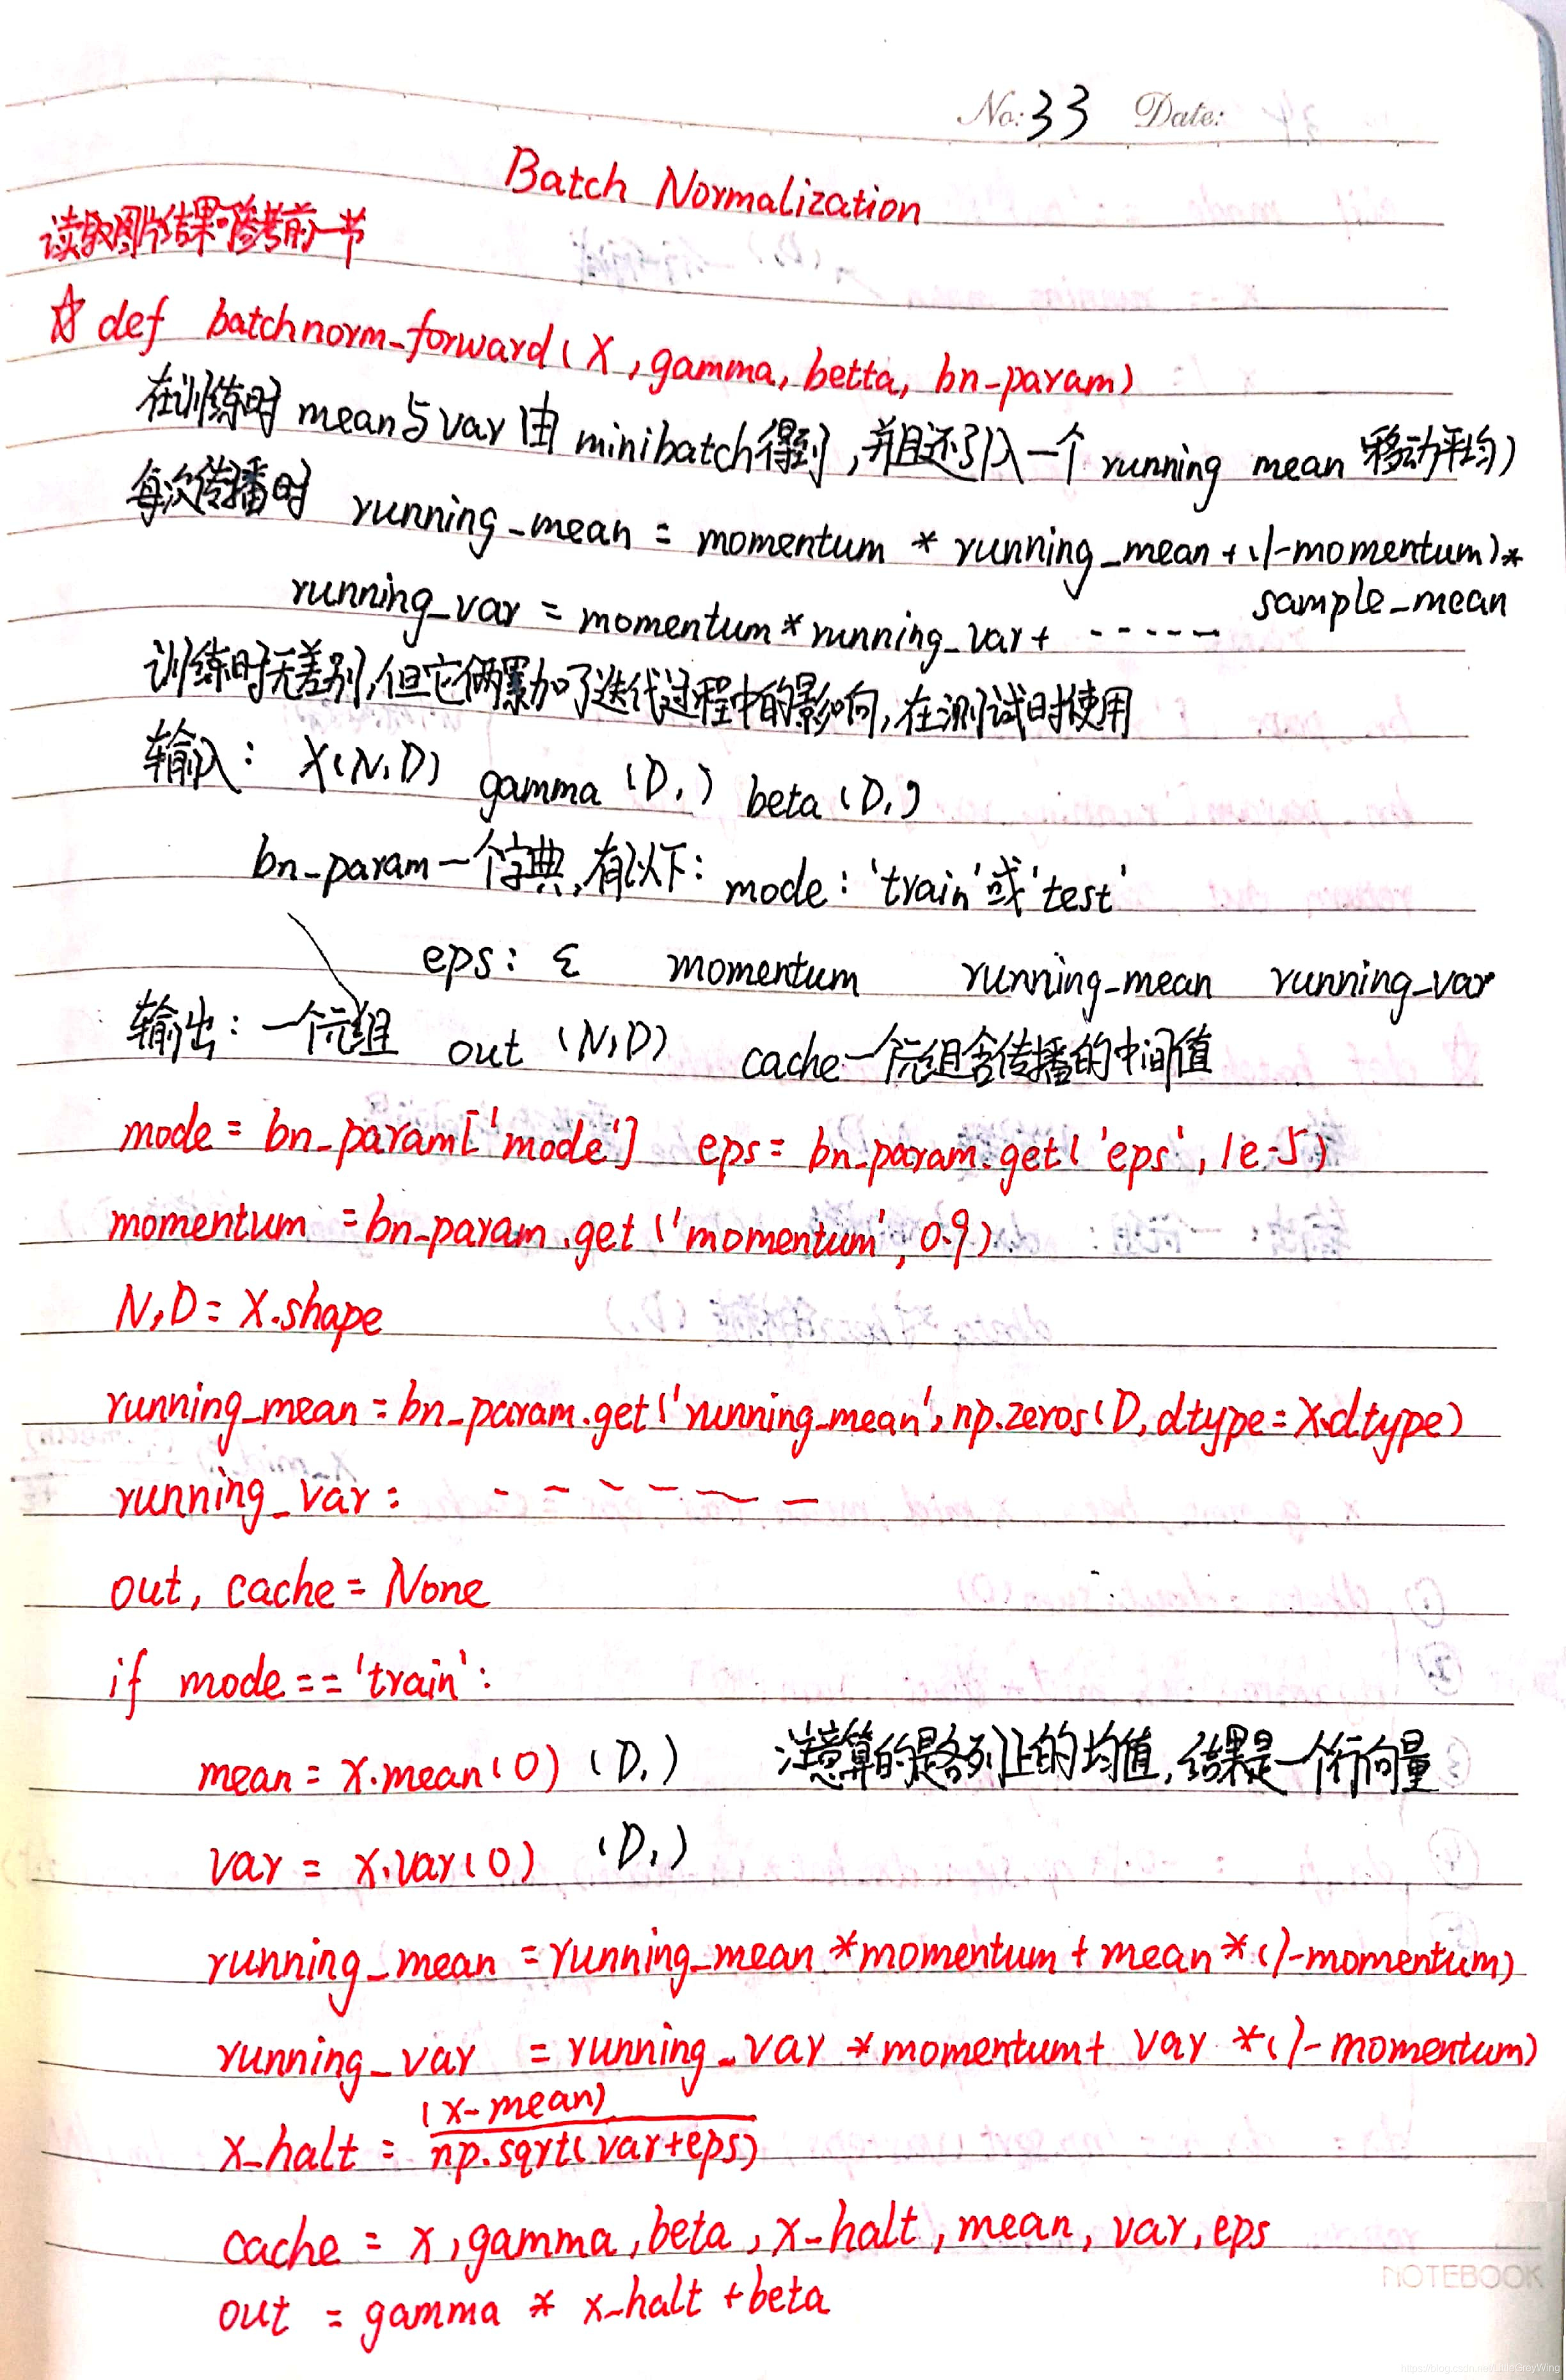 No: 33 Date:
Batch Normalization
读取图片结果可参考前一节
☆ def batchnorm_forward(X, gamma, betta, bn_param)
在训练时 mean与var 由 minibatch得到,并且还引入一个 running mean (移动平均)
每次传播时 running_mean = momentum * running_mean + (1-momentum)*
sample_mean
running_var = momentum * running_var + ------
训练时无差别,但它俩累加了迭代过程中的影响,在测试时使用
输入: X(N,D) gamma (D,) beta (D,)
bn_param 一个字典,有以下: mode: 'train'或'test'
eps: ε momentum running_mean running_var
输出: 一个元组 out (N,D) cache一个元组含传播的中间值
mode = bn_param['mode'] eps = bn_param.get('eps', 1e-5)
momentum = bn_param.get('momentum', 0.9)
N,D = X.shape
running_mean = bn_param.get('running_mean', np.zeros(D, dtype=X.dtype)
running_var: - - - - - -
out, cache = None
if mode == 'train':
mean = x.mean(0) (D,) 注意算的是各列上的均值,结果是一个行向量
var = x.var(0) (D,)
running_mean = running_mean * momentum + mean * (1-momentum)
running_var = running_var * momentum + var * (1-momentum)
(x-mean)
x_halt = np.sqrt(var+eps)
cache = x, gamma, beta, x_halt, mean, var, eps
out = gamma * x_halt + beta
NOTEBOOK